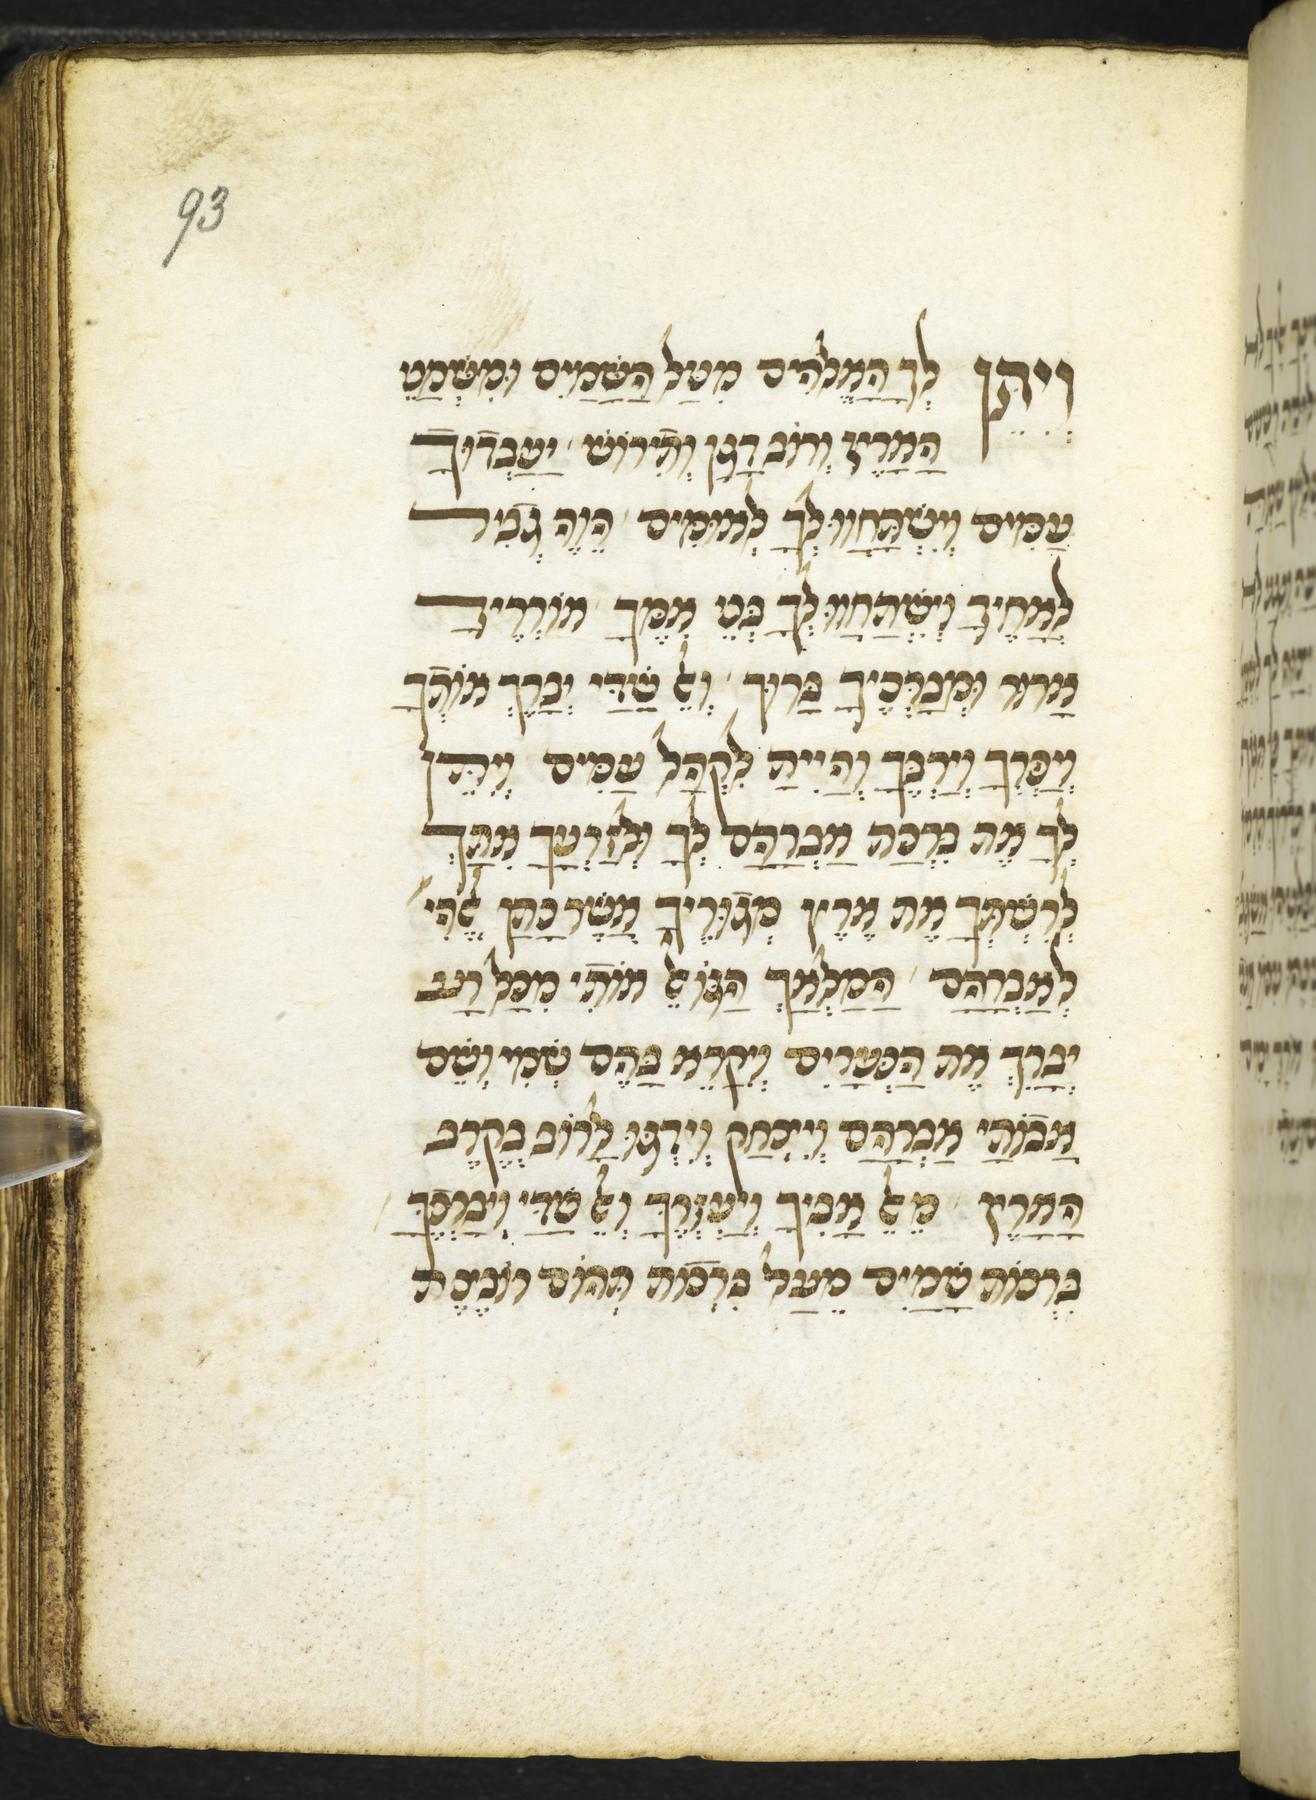 93
וְיִתֵּן לְךָ הָאֱלֹהִים מִטַּל הַשָּׁמַיִם וּמִשְׁמַנֵּי
הָאָרֶץ וְרוֹב דָּגָן וְתִירוֹשׁ יַעַבְדוּךָ
עַמִּים וְיִשְׁתַּחֲווּ לְךָ לְאוּמִּים הֱוֵה גְבִיר
לְאַחֶיךָ וְיִשְׁתַּחֲווּ לְךָ בְּנֵי אִמֶּךָ אוֹרְרֶיךָ
אָרוּר וּמְבָרְכֶיךָ בָּרוּךְ וְאֵל שַׁדַּי יְבָרֵךְ אוֹתְךָ
וְיַפְרְךָ וְיַרְבֶּךָ וְהָיִיתָ לִקְהַל עַמִּים וְיִתֵּן
לְךָ אֶת בִּרְכַּת אַבְרָהָם לְךָ וּלְזַרְעֲךָ אִתָּךְ
לְרִשְׁתְּךָ אֶת אֶרֶץ מְגוּרֶיךָ אֲשֶׁר נָתַן אֱלֹהִים
לְאַבְרָהָם הַמַּלְאָךְ הַגּוֹאֵל אוֹתִי מִכָּל רָע
יְבָרֵךְ אֶת הַנְּעָרִים וְיִקָּרֵא בָהֶם שְׁמִי וְשֵׁם
אֲבוֹתַי אַבְרָהָם וְיִצְחָק וְיִדְגּוּ לָרוֹב בְּקֶרֶב
הָאָרֶץ מֵאֵל אָבִיךָ וְיַעְזְרֶךָּ וְאֵל שַׁדַּי וִיבָרְכֶךָּ
בִּרְכוֹת שָׁמַיִם מֵעָל בִּרְכוֹת תְּהוֹם רוֹבֶצֶת